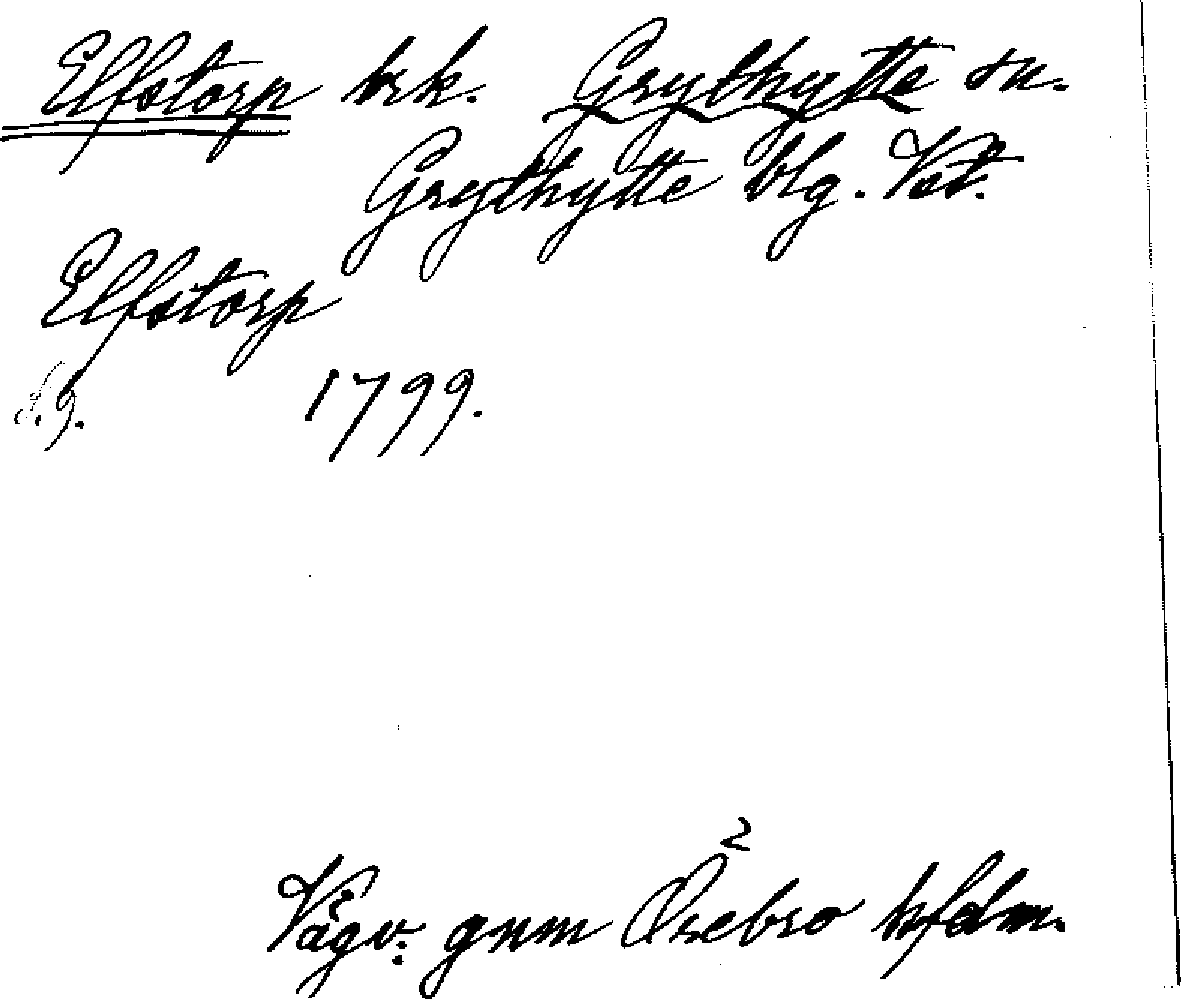 Elfstorp brk. Grythytte sn.
Grythytte blg. Vst.
Elfstorp
S. 9. 1799.
2
Vägv. gnm Örebro hfdm.